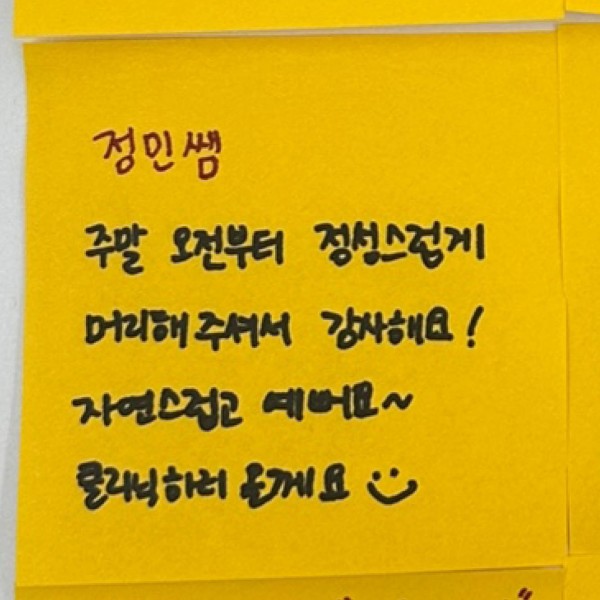 정민쌤
주말 오전부터 정성스럽게
머리해주셔서 감사해요!
자연스럽고 예뻐요~
클리닉하러 올께요